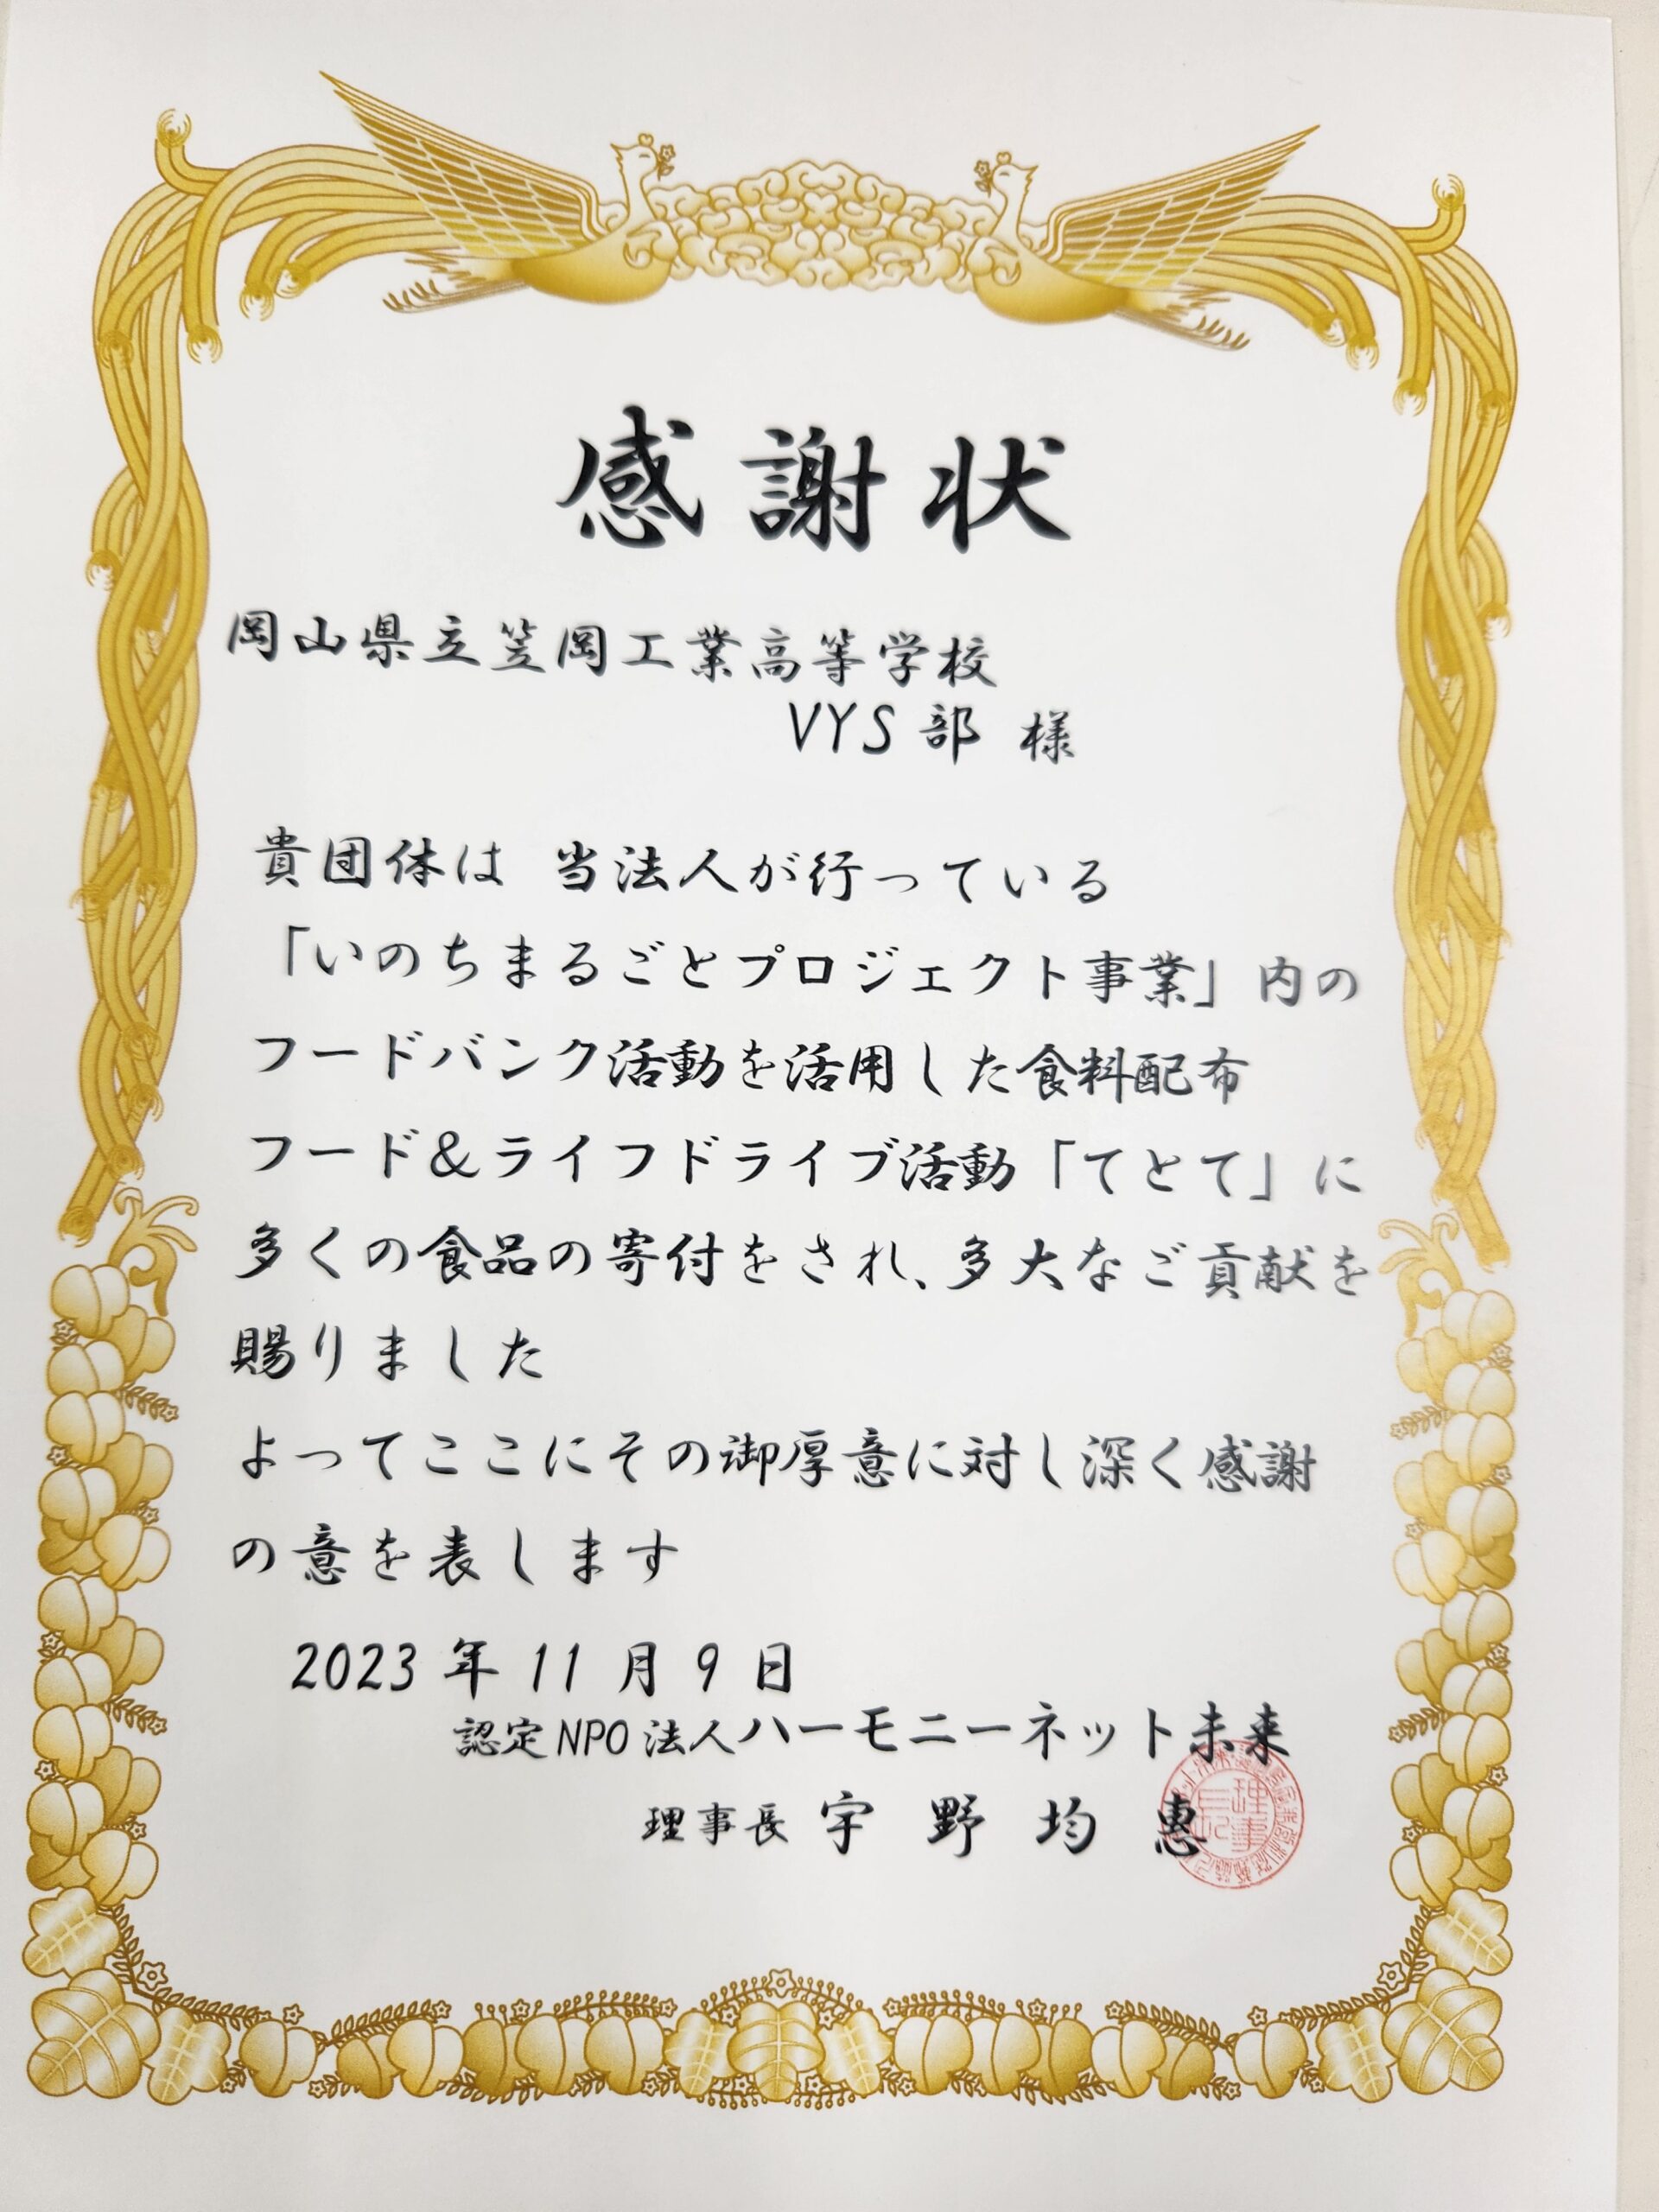 感謝状
岡山県立笠岡工業高等学校
VYS部 様
貴団体は 当法人が行っている
「いのちまるごとプロジェクト事業」内の
フードバンク活動を活用した食料配布
フード&ライフドライブ活動「てとて」に
多くの食品の寄付をされ、多大なご貢献を
賜りました
よってここにその御厚意に対し深く感謝
の意を表します
2023年11月9日
認定NPO法人ハーモニーネット未来
理事長 宇野均惠